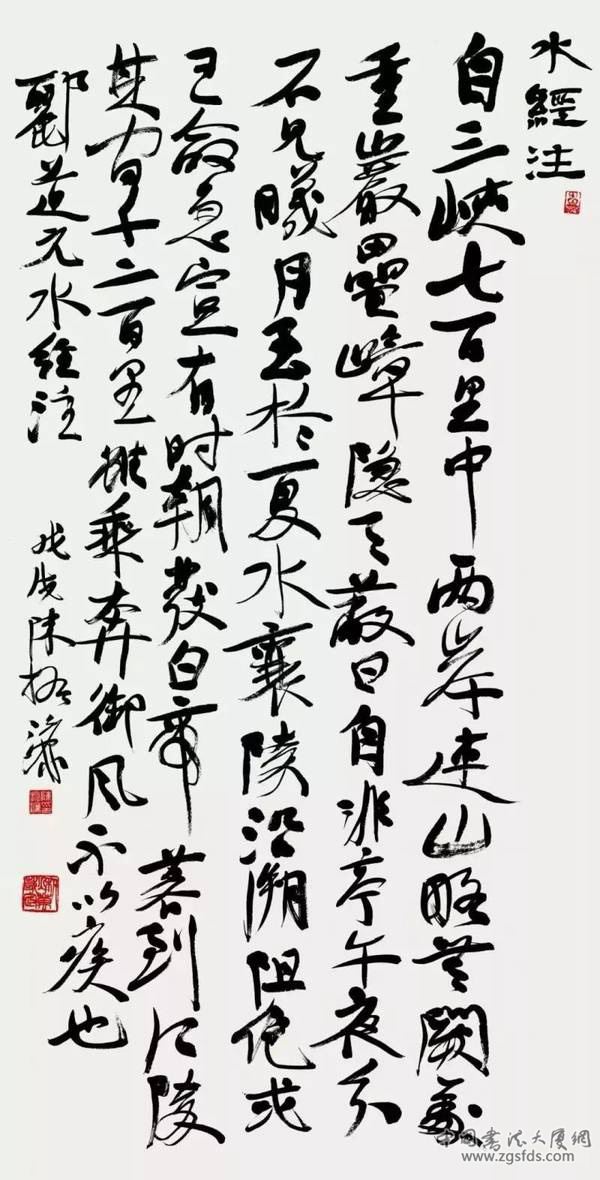 水經注
自三峽七百里中两岸連山略無闕處
重巖疊嶂隱天蔽日自非亭午夜分
不見曦月至於夏水襄陵沿溯阻绝或
王命急宣有时朝發白帝暮到江陵
其间千二百里雖乘奔御风不以疾也
酈道元水经注
戊戌陈振濂
中国書法大厦網
www.zgsfds.com